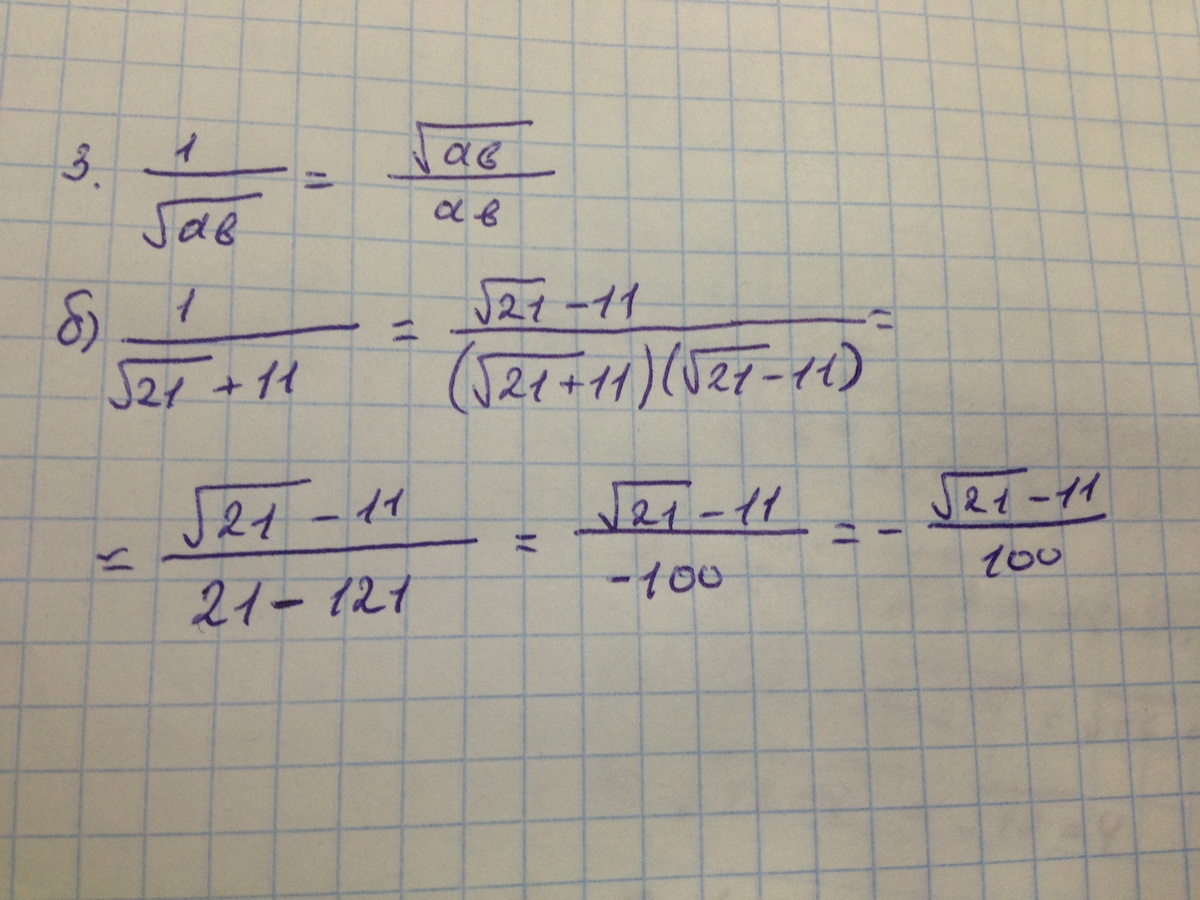 3. 1/√ав = √ав/ав
б) 1/(√21 + 11) = (√21 - 11)/((√21+11)(√21-11)) =
= (√21 - 11)/(21 - 121) = (√21 - 11)/(-100) = - (√21 - 11)/100